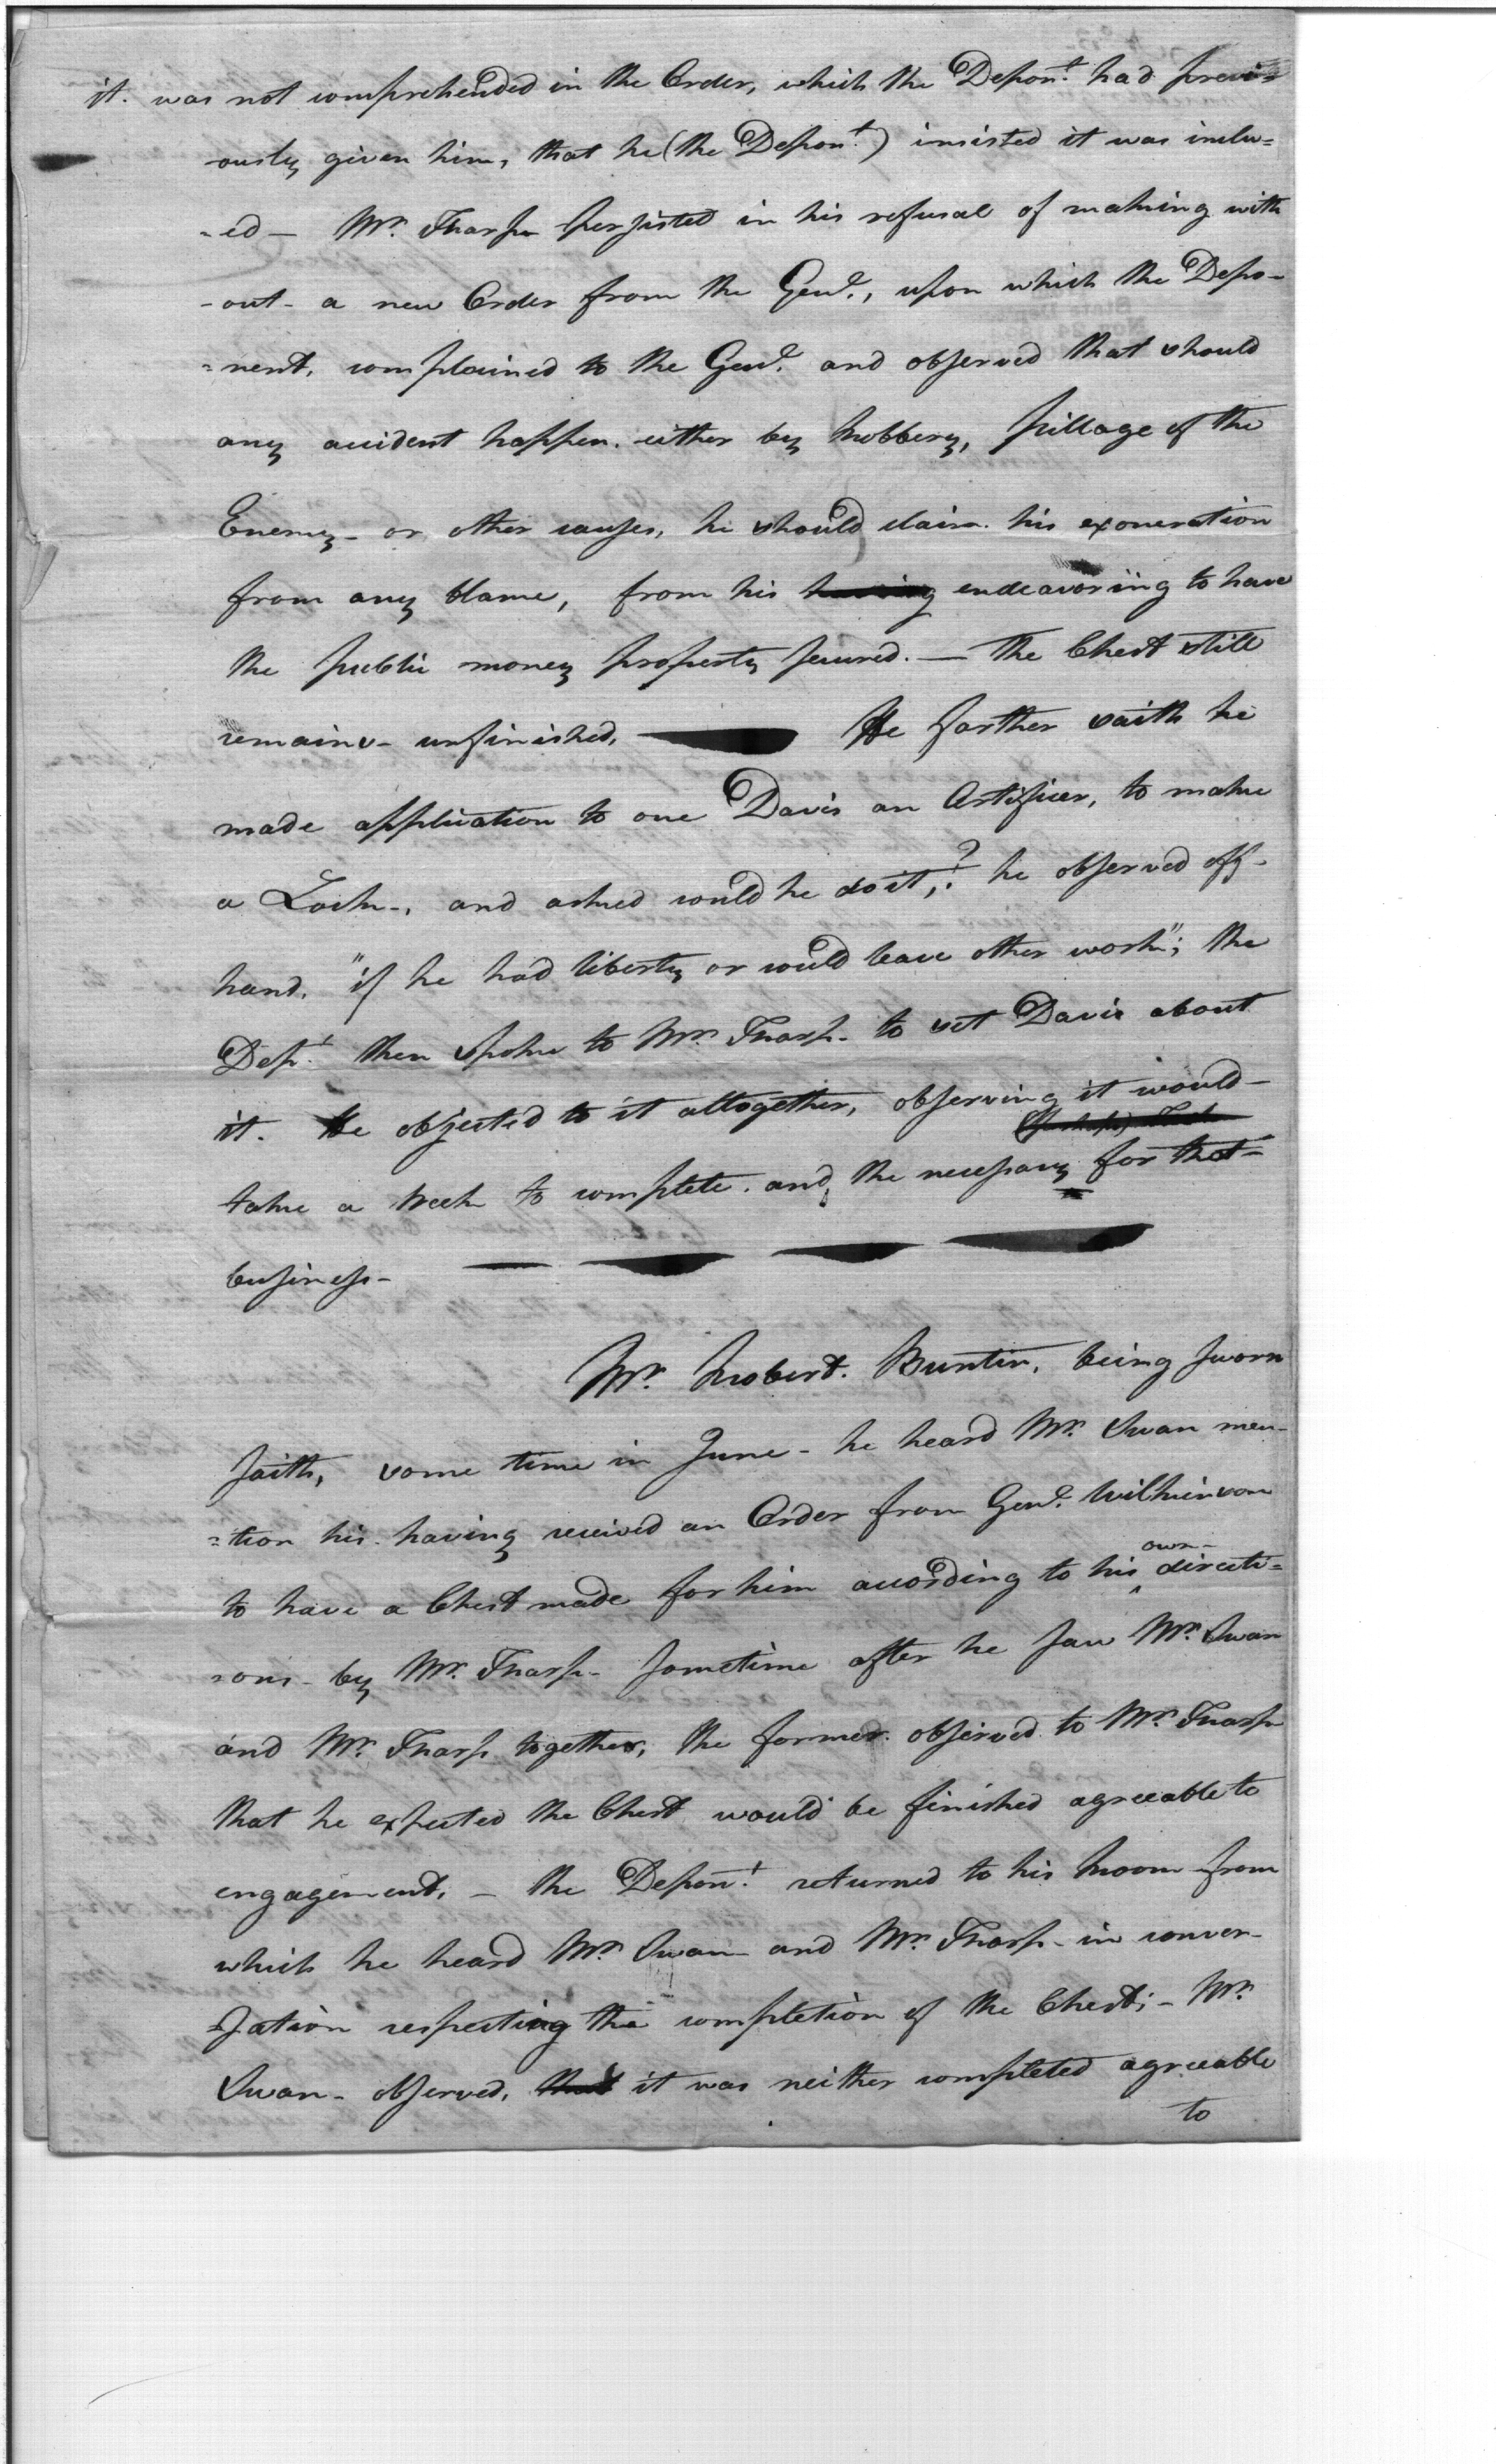 it. was not comprehended in the Order, which the Depont. had previ=
ously given him, that he (the Depont.) insisted it was inclu=
-ed — Mr. Tharp persisted in his refusal of making with
-out - a new Order from the Genl., upon which the Depo-
=nent, complained to the Genl. and observed that should
any accident happen either by Robbery, pillage of the
Enemy - or other causes, he should claim his exoneration
from any blame, from his having endeavoring to have
the public money property secured. — The Chest still
remains - unfinished, — He farther saith he
made application to one Davis an Artificer, to make
a Lock -, and asked would he do it,? he observed off-
hand, "if he had liberty or would leave other work"; the
Dept. then spoke to Mr. Tharp - to set Davis about
it. He objected to it altogether, observing it would -
take a Week to complete. and, the necessary for that -
business -
Mr. Robert. Buntin, being sworn
saith, some time in June - he heard Mr. Swan men-
=tion his having received an Order from Genl. Wilkinson
own -
to have a Chest made for him according to his ^ directi=
=ons - by Mr. Tharp - sometime after he saw Mr. Swan
and Mr. Tharp together, the former observed to Mr. Tharp
that he expected the Chest would be finished agreeable to
engagement. - the Depont. returned to his Room from
which he heard Mr. Swan - and Mr. Tharp - in conver-
sation respecting the completion of the Chest; - Mr.
Swan - observed, that it was neither completed agreeable
to